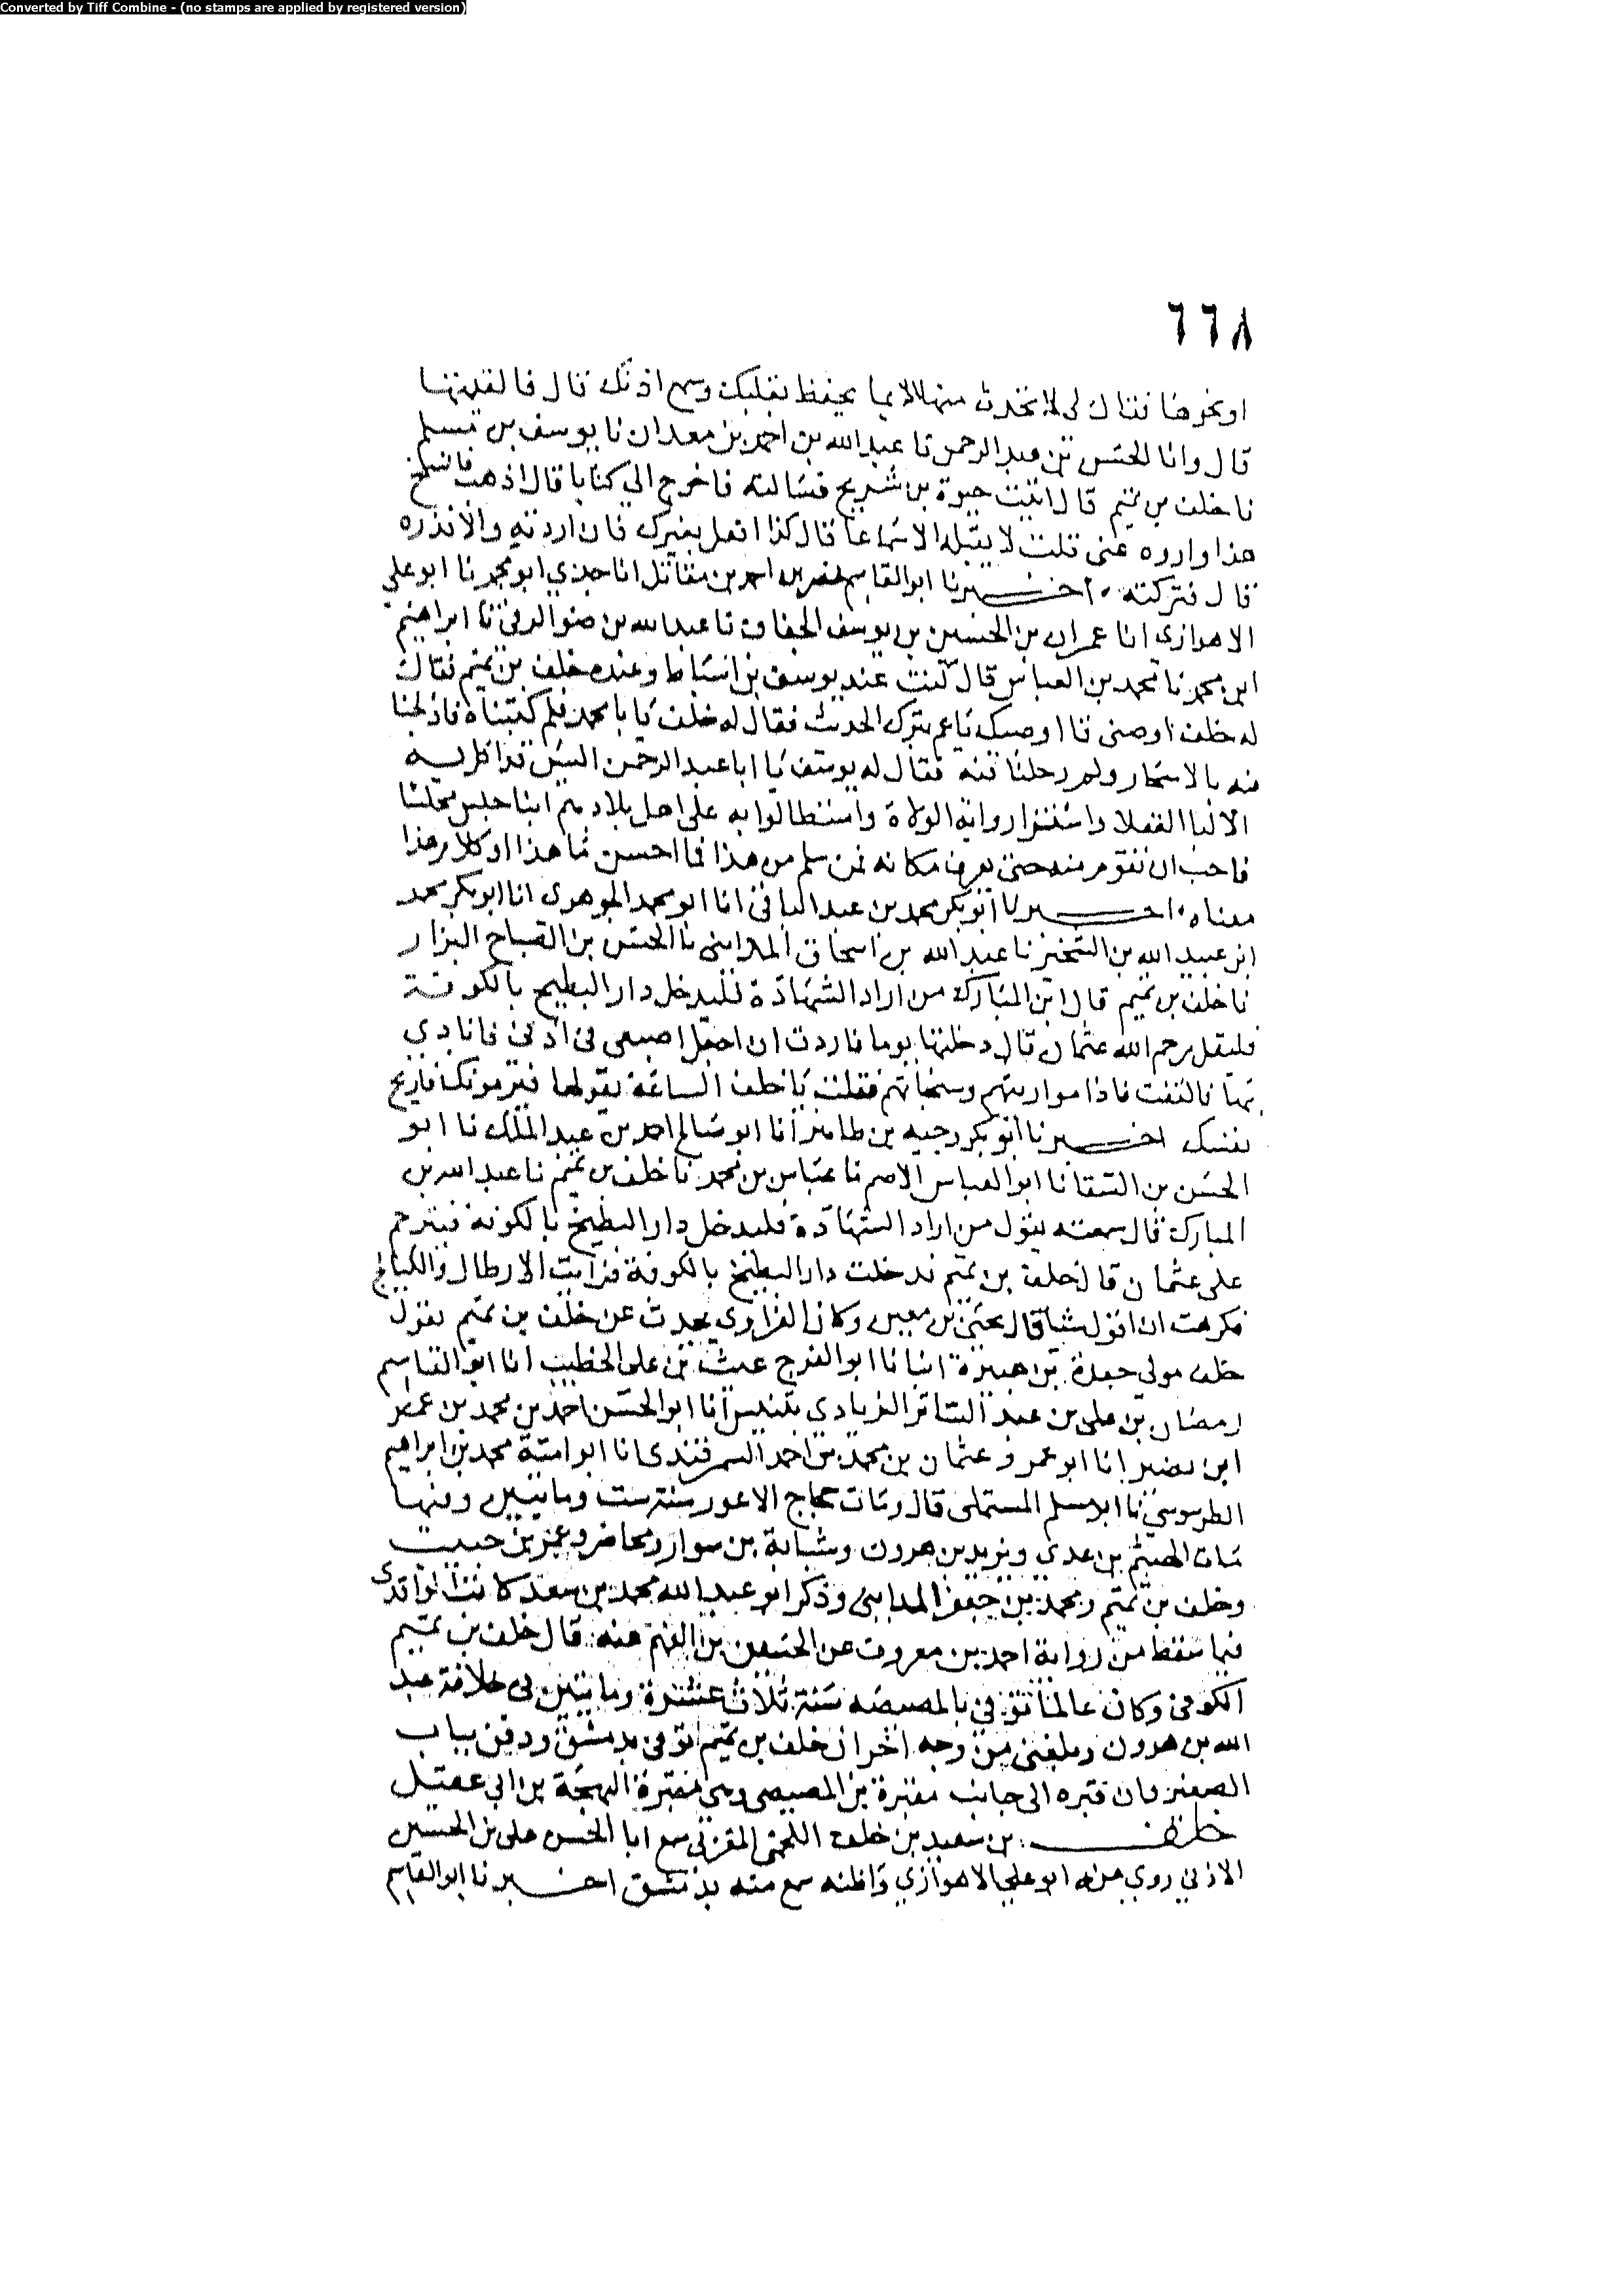 Converted by Tiff Combine - (no stamps are applied by registered version)
٦٦٨
او نحوها فقال لي لا تحدث منها الا بما يحفظ بقلبك وسمع اذنك قال فالقيتها
قال وانا الحسن بن عبد الرحمن نا عبد الله بن احمد بن معدان نا يوسف بن مسلم
نا خلف بن تميم قال اتيت حيوة بن شريح فسالته فاخرج الي كتابا قال اذهب فانسخ
هذا واروه عني قلت لا يقبله الا سماعا قال كذا افعل بغيرك فان اردته والا فذره
قال فتركته اخبرنا ابو القاسم نصر بن احمد بن مقاتل انا جدي ابو محمد نا ابو علي
الاهوازي انا عمران بن الحسين بن يوسف الخفاف نا عبد الله بن الرقي نا ابراهيم
ابن محمد نا محمد بن العباس قال كنت عند يوسف بن اسباط وعنده خلف بن تميم فقال
له خلف اوصني قال اوصيك يا عم بترك الحديث فقال له خلف يا با محمد فلم كتبناه فاذلجنا
فيه بالاسحار ولم رحلنا فيه فقال له يوسف يا ابا عبد الرحمن اليس
واستطالوا به على اهل بلادهم اينا جلس مجلسا
فاحب ان نقوم منه حتى يعرف مكانه فمن سلم من هذا فما احسن ما هذا او كلام هذا
معناه اخبرنا ابو بكر محمد بن عبد الباقي انا ابو محمد الجوهري انا ابو بكر محمد
ابن عبيد الله بن الشخير نا عبد الله بن اسحاق المدايني نا الحسن بن الصباح البزار
نا خلف بن تميم قال ابن المبارك من اراد الشهادة فليدخل دار البطيخ بالكوفة
فليقل رحم الله عثمان قال دخلتها يوما فاردت ان اجعل اصبعي في اذني فانادي
بها فالتفت فاذا موازينهم وسنجاتهم فقلت يا خلف الساعة يقولها فيرمونك فاربح
نفسك اخبرنا ابو بكر وجيه بن طاهر انا ابو صالح احمد بن عبد الملك نا ابو
الحسن بن السقا نا ابو العباس الاصم نا عباس بن محمد نا خلف بن تميم نا عبد الله بن
المبارك قال سمعته يقول من اراد الشهادة فليدخل دار البطيخ بالكوفة فيترحم
على عثمان قال خلف بن تميم فدخلت دار البطيخ بالكوفة فرايت الارطال والكيالج
فكرهت ان اقول شيا قال يحيى بن معين وكان الفزاري يحدث عن خلف بن تميم يقول
خلف مولى جعدة بن هبيرة انبانا ابو الفرج غيث بن علي الخطيب انا ابو القاسم
رمضان بن علي بن عبد الساتر الزيادي بتنيس انا ابو الحسن احمد بن محمد بن عمر
ابن نصير انا ابو عمرو عثمان بن محمد بن احمد السمرقندي انا ابو امية محمد بن ابراهيم
الطرسوسي نا ابو مسلم المستملي قال ومات حجاج الاعور سنة ست ومايتين وفيها
مات الهيثم بن عدي ويزيد بن هرون وشبابة بن سوار ومحاضر وعمر بن حبيب
وخلف بن تميم ومحمد بن جعفر المدايني وذكر ابو عبد الله محمد بن سعد كاتب الواقدي
فيما سقط من رواية احمد بن معروف عن الحسين بن الفهم عنه قال خلف بن تميم
الكوفي وكان عالما توفي بالمصيصه سنة ثلاث عشرة ومايتين في خلافة عبد
الله بن هرون وبلغني من وجه اخر ان خلف بن تميم توفي بدمشق ودفن بباب
الصغير وان قبره الى جانب مقبرة بن المصيصي وهي مقبرة البهجة بن ابي عقيل
خلف بن سعيد بن خلف اللخمي المقرئ سمع ابا الحسن علي بن الحسين
الاذني روي عنه ابو علي الاهوازي واظنه سمع منه بدمشق اخبرنا ابو القاسم